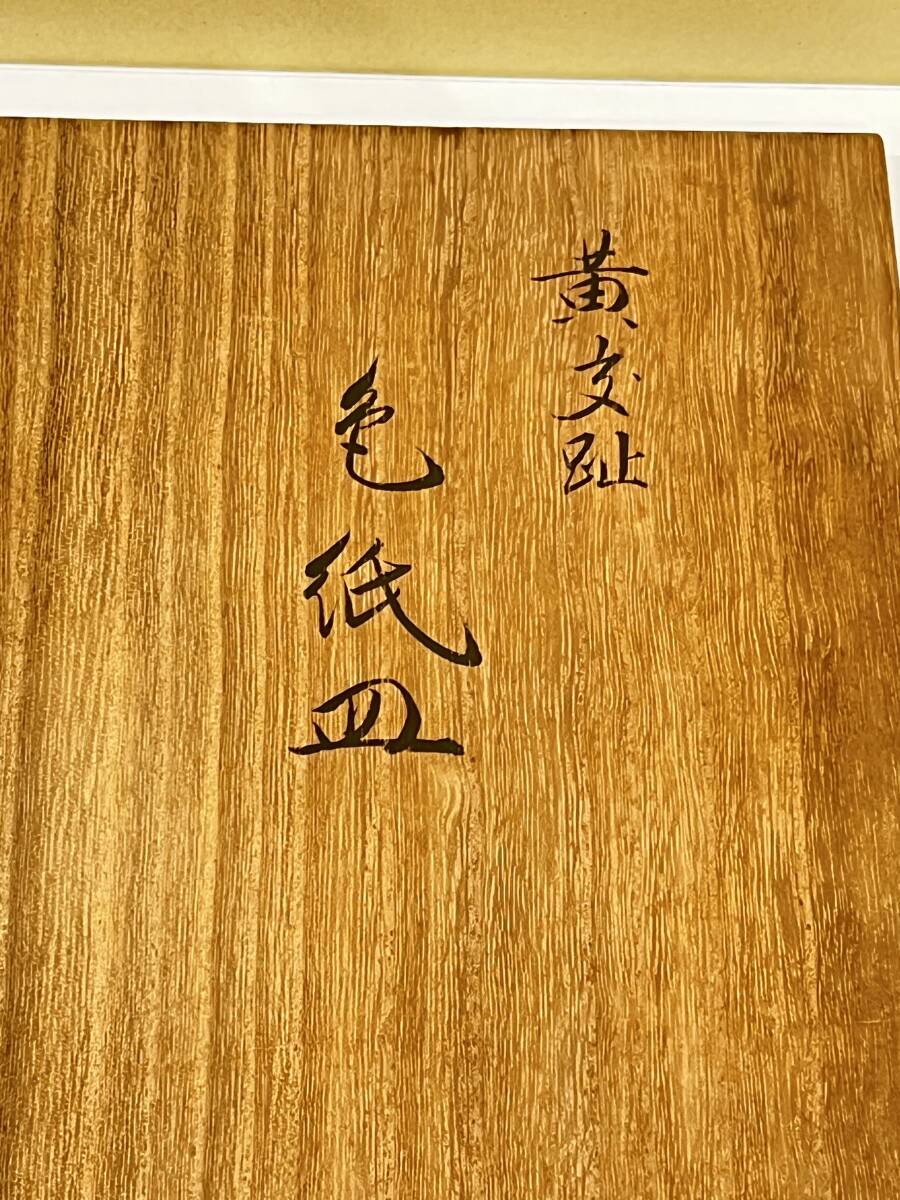 黄交趾
色紙皿